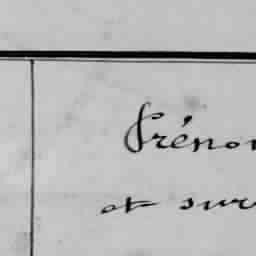 Préno
et sur